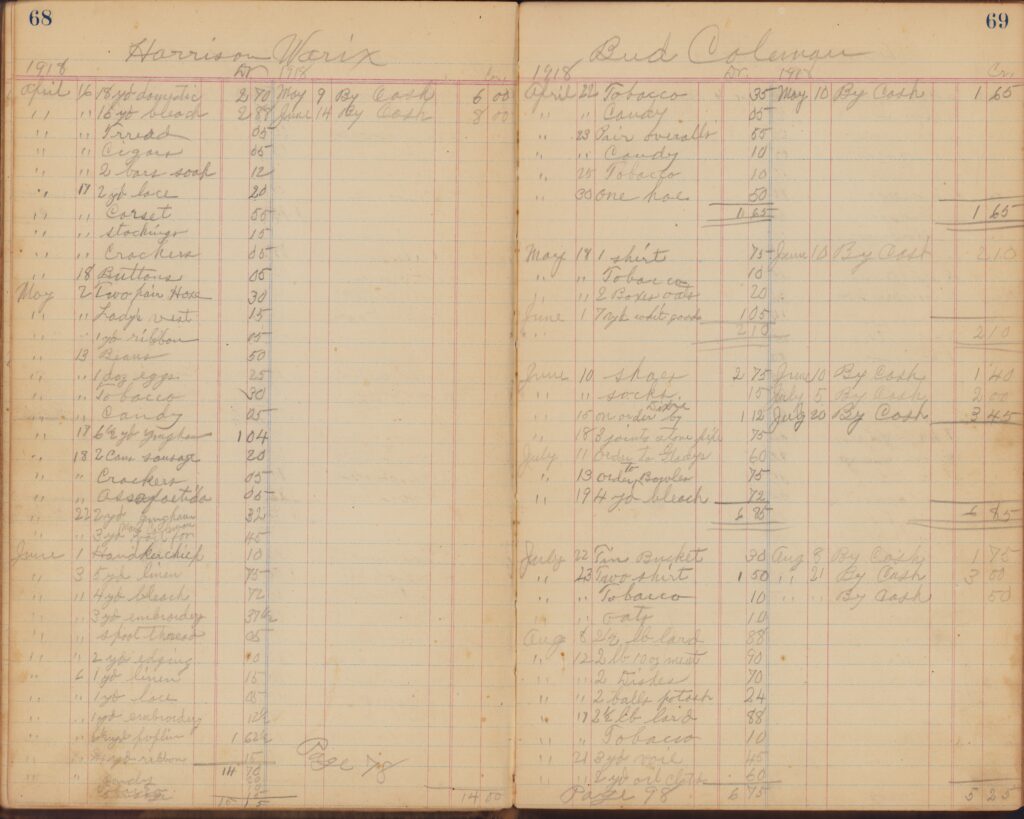 68
Harrison Werix
1918 Dr 1918 Cr
April 16 18 yd domestic 2 70 May 9 By Cash 6 00
" " 16 yd bleach 2 88 June 14 By Cash 8 00
" " Trread 05
" " Cigars 05
" " 2 bars soap 12
" 17 2 yd lace 20
" " Corset 55
" " stockings 15
" " Crackers 05
" 18 Buttons 05
May 2 Two pair Hose 30
" " Lady vest 15
" 1 yd ribbon 05
" 13 Beans 50
" " 1 doz eggs 25
" " Tobacco 30
" " Candy 05
" 17 6 1/2 yd gingham 1 04
" 18 2 Cans sausage 20
" " Crackers 05
" " Assafoetida 05
" 22 2 yd gingham 32
" " 3 yd 45
June 1 Handkerchief 10
" 3 5 yd linen 75
" " 4 yd bleach 72
" " 3 yd embroidery 37 1/2
" " spool thread 05
" " 2 yd edging 10
" 6 1 yd linen 15
" " 1 yd lace 05
" " 1 yd embroidery 12 1/2
" " yd poplin 1 62 1/2
" " yd ribbon 15
" " Candy
14 00
69
Bud Coleman
1918 Dr 1918 Cr
April 22 Tobacco 35 May 10 By Cash 1 65
" " Candy 05
" 23 Pair overalls 55
" " Candy 10
" 25 Tobacco 10
" 30 one hoe 50
1 65 1 65
May 18 1 shirt 75 June 10 By Cash 2 10
" " Tobacco 10
" " 2 Boxes oats 20
June 1 7 yd white goods 1 05
2 10 2 10
June 10 shoes 2 75 June 10 By Cash 1 40
" " socks 15 July 5 By Cash 2 00
" 15 on order by 1 12 July 20 By Cash 3 45
" 18 3 joints stove pipe 75
July 11 order to Gladys 60
" 13 order to Bowles 75
" 19 4 yd bleach 72
6 85 6 85
July 22 Tin Bucket 30 Aug 8 By Cash 1 75
" 23 Two shirt 1 50 " 21 By Cash 3 00
" " Tobacco 10 " " By Cash 50
" " oats 10
Aug 8 2 1/2 lb lard 88
" 12 2 lb 10 oz meat 90
" " 2 Dishes 70
" " 2 balls potash 24
" 17 2 1/2 lb lard 88
" " Tobacco 10
" 21 3 yd voil 45
" " 2 yd oil cloth 60
Page 98 6 75 5 25